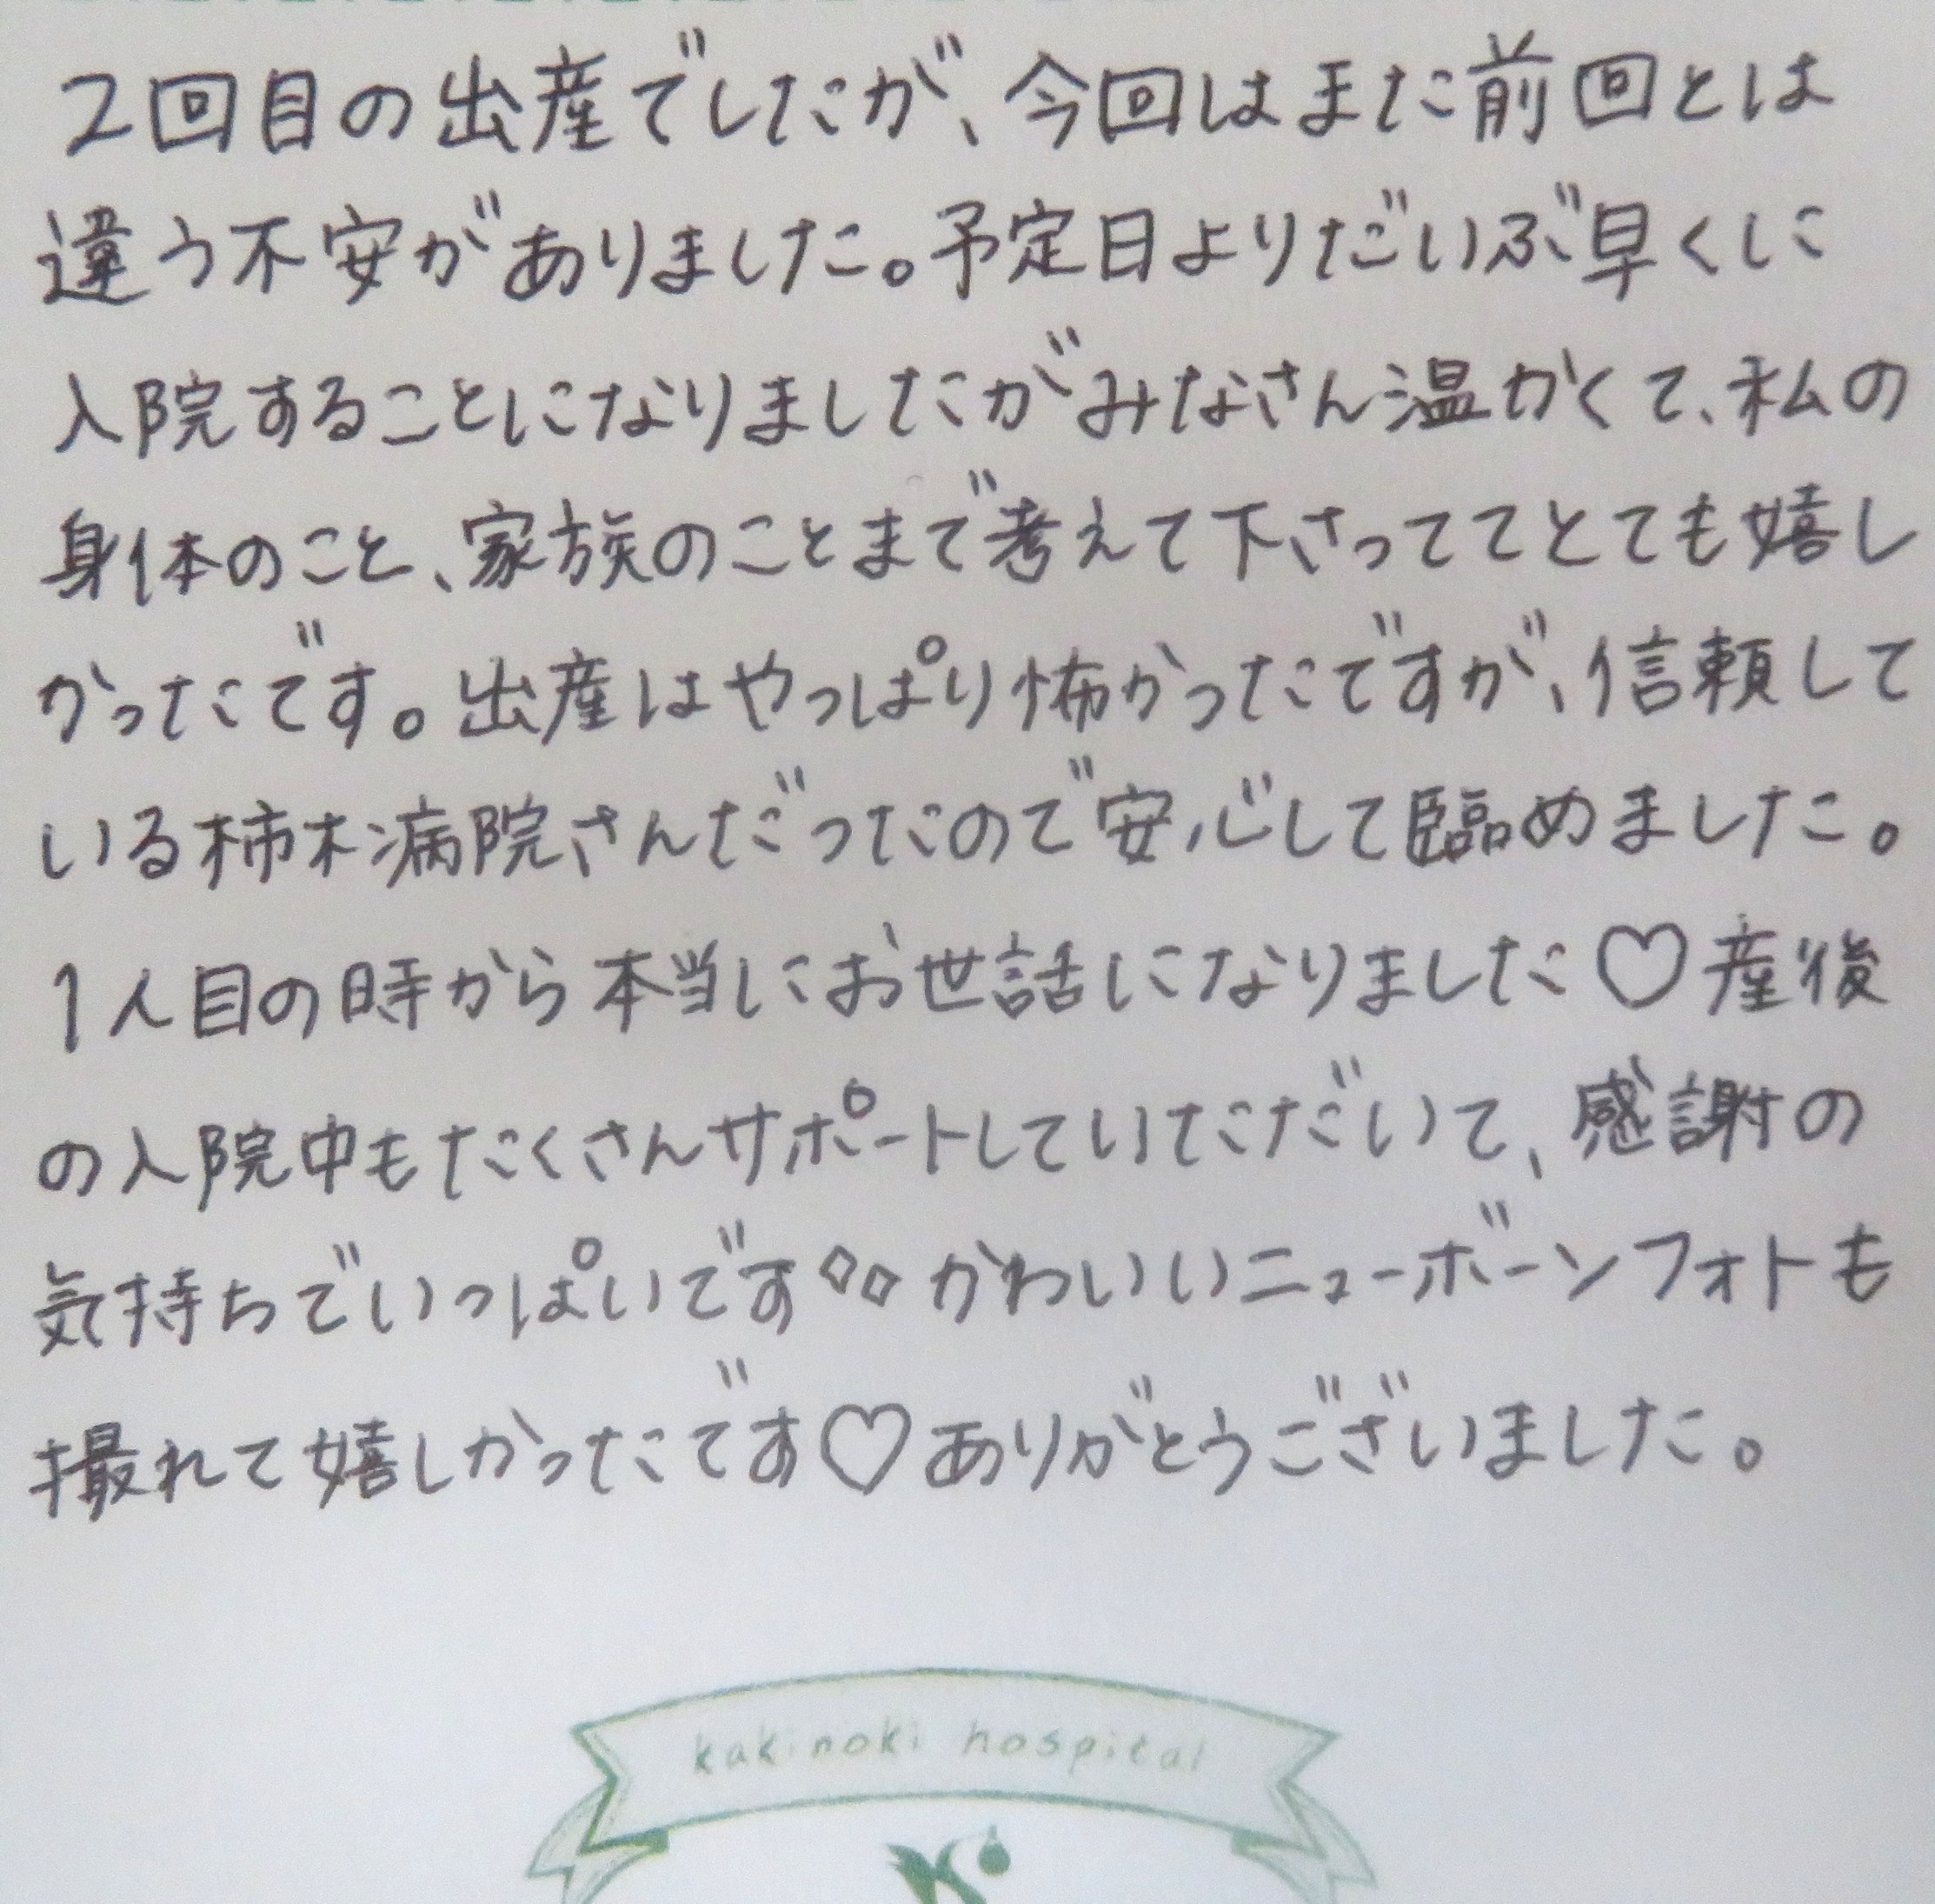 2回目の出産でしたが、今回はまた前回とは
違う不安がありました。予定日よりだいぶ早くに
入院することになりましたがみなさん温かくて、私の
身体のこと、家族のことまで考えて下さっててとても嬉し
かったです。出産はやっぱり怖かったですが、信頼して
いる柿木病院さんだったので安心して臨めました。
1人目の時から本当にお世話になりました♡産後
の入院中もたくさんサポートしていただいて、感謝の
気持ちでいっぱいです◇◇かわいいニューボーンフォトも
撮れて嬉しかったです♡ありがとうございました。
kakinoki hospital